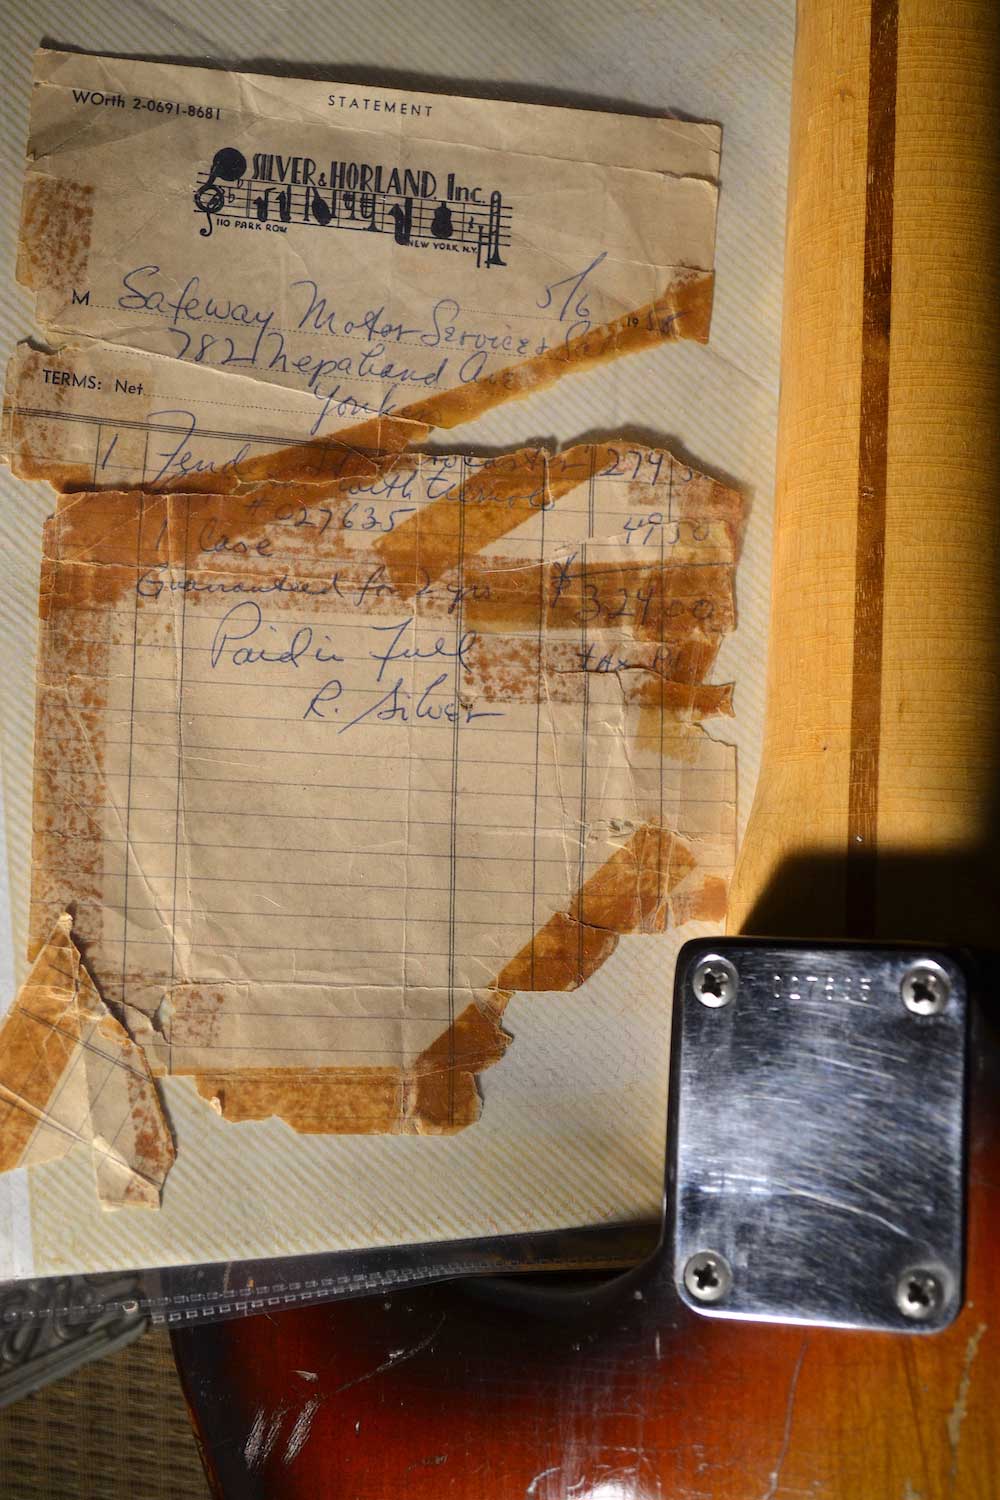 WOrth 2-0691-8681
STATEMENT
SILVER & HORLAND, Inc.
110 PARK ROW
NEW YORK, N.Y.
5/6 1958
M Safeway Motor Services
782 Nepahand Ave
Yonkers
TERMS: Net
1 Fend Stratocaster 274 50
with tremolo
# 027635
1 Case 49 50
Guaranteed for 2 yrs $ 324 00
Paid in Full tax
R. Silver
027635